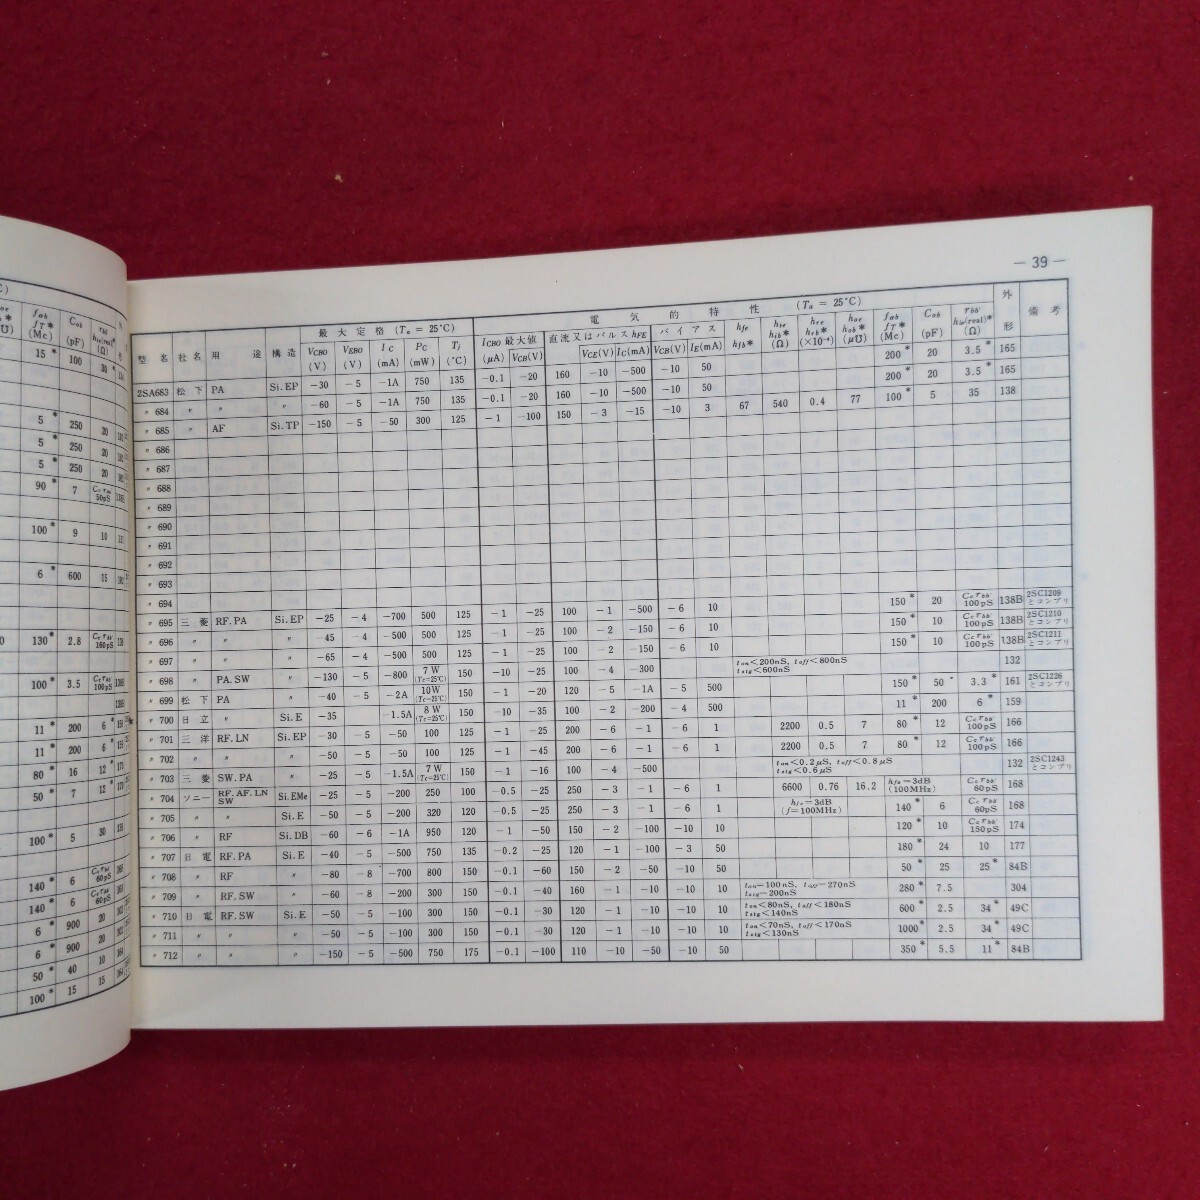 15* 100 30*
5* 250 20
5* 250 20
5* 250 20
90* 7 50pS
100* 9 10
6* 600 15
130* 2.8 160pS
100* 3.5 100pS
11* 200 6*
11* 200 6*
80* 16 12*
50* 7 12*
100* 5 30
140* 6 60pS
140* 6 60pS
6* 900 20
6* 900 20
50* 40 10
100* 15 15
— 39 —
型名 社名 用途 構造 最大定格 (Ta = 25°C) 電気的特性 (Ta = 25°C) 外形 備考
VCBO (V) VEBO (V) IC (mA) PC (mW) Tj (°C) ICBO最大値 (μA) VCB(V) 直流又はパルスhFE VCE(V) IC(mA) バイアス VCB(V) IE(mA) hfe hfb* hie hib* (Ω) hre hrb* (×10⁻⁴) hoe hob* (μ℧) fαb fT* (Mc) Cob (pF) rbb' hie(real)* (Ω)
2SA683 松下 PA Si.EP −30 −5 −1A 750 135 −0.1 −20 160 −10 −500 −10 50 200* 20 3.5* 165
〃 684 〃 〃 〃 −60 −5 −1A 750 135 −0.1 −20 160 −10 −500 −10 50 200* 20 3.5* 165
〃 685 〃 AF Si.TP −150 −5 −50 300 125 −1 −100 150 −3 −15 −10 3 67 540 0.4 77 100* 5 35 138
〃 686
〃 687
〃 688
〃 689
〃 690
〃 691
〃 692
〃 693
〃 694
〃 695 三菱 RF.PA Si.EP −25 −4 −700 500 125 −1 −25 100 −1 −500 −6 10 150* 20 Ccrbb' 100pS 138B 2SC1209とコンプリ
〃 696 〃 〃 〃 −45 −4 −500 500 125 −1 −25 100 −2 −150 −6 10 150* 10 Ccrbb' 100pS 138B 2SC1210とコンプリ
〃 697 〃 〃 〃 −65 −4 −500 500 125 −1 −25 100 −2 −150 −6 10 150* 10 Ccrbb' 100pS 138B 2SC1211とコンプリ
〃 698 〃 PA.SW 〃 −130 −5 −800 7W (Tc=25°C) 150 −10 −25 100 −4 −300 ton<200nS, toff<800nS tstg<600nS 132
〃 699 松下 PA 〃 −40 −5 −2A 10W (Tc=25°C) 150 −1 −20 120 −5 −1A −5 500 150* 50 3.3* 161 2SC1226とコンプリ
〃 700 日立 〃 Si.E −35 −1.5A 8W (Tc=25°C) 150 −10 −35 100 −2 −200 −4 500 11* 200 6* 159
〃 701 三洋 RF.LN Si.EP −30 −5 −50 100 125 −1 −25 200 −6 −1 −6 1 2200 0.5 7 80* 12 Ccrbb' 100pS 166
〃 702 〃 〃 〃 −50 −5 −50 100 125 −1 −45 200 −6 −1 −6 1 2200 0.5 7 80* 12 Ccrbb' 100pS 166
〃 703 三菱 SW.PA 〃 −25 −5 −1.5A 7W (Tc=25°C) 150 −1 −16 100 −4 −500 ton<0.2μS, toff<0.8μS tstg<0.6μS 132 2SC1243とコンプリ
〃 704 ソニー RF.AF.LN SW Si.EMe −25 −5 −200 250 100 −0.5 −25 250 −3 −1 −6 1 6600 0.76 16.2 hfe=3dB (100MHz) Ccrbb' 60pS 168
〃 705 〃 〃 Si.E −50 −5 −200 320 120 −0.5 −25 250 −3 −1 −6 1 hfe=3dB (f=100MHz) 140* 6 Ccrbb' 60pS 168
〃 706 〃 RF Si.DB −60 −6 −1A 950 120 −1 −50 150 −2 −100 −10 10 120* 10 Ccrbb' 150pS 174
〃 707 日電 RF.PA Si.E −40 −5 −500 750 135 −0.2 −25 120 −1 −100 −3 50 180* 24 10 177
〃 708 〃 RF 〃 −80 −8 −700 800 150 −0.1 −60 150 −2 −50 −10 50 50* 25 25* 84B
〃 709 〃 RF.SW 〃 −60 −8 −200 300 150 −0.1 −40 160 −1 −10 −10 10 ton=100nS, toff=270nS tstg=200nS 280* 7.5 304
〃 710 日電 RF.SW Si.E −50 −5 −100 300 150 −0.1 −30 120 −1 −10 −10 10 ton<80nS, toff<180nS tstg<140nS 600* 2.5 34* 49C
〃 711 〃 〃 〃 −50 −5 −100 300 150 −0.1 −30 120 −1 −10 −10 10 ton<70nS, toff<170nS tstg<130nS 1000* 2.5 34* 49C
〃 712 〃 〃 〃 −150 −5 −500 750 175 −0.1 −100 110 −10 −50 −10 50 350* 5.5 11* 84B